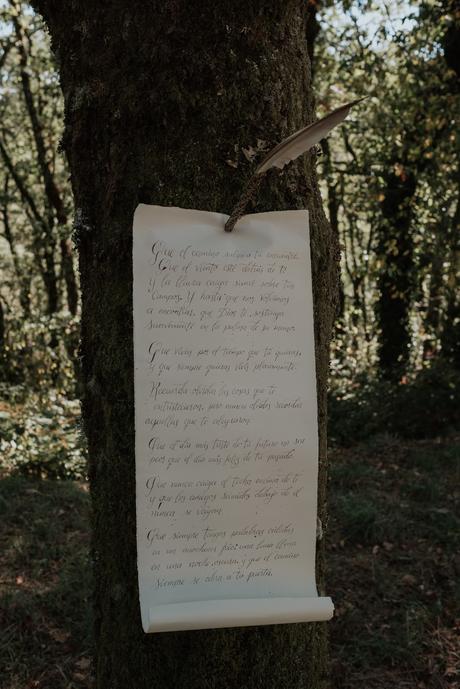 Que el camino venga a tu encuentro
Que el viento esté detrás de ti
Y la lluvia caiga suave sobre tus
campos. Y hasta que nos volvamos
a encontrar, que Dios te sostenga
suavemente en la palma de su mano.
Que vivas por el tiempo que tú quieras,
y que siempre quieras vivir plenamente.
Recuerda olvidar las cosas que te
entristecieron, pero nunca olvides recordar
aquellas que te alegraron.
Que el día más triste de tu futuro no sea
peor que el día más feliz de tu pasado.
Que nunca caiga el techo encima de ti
y que los amigos reunidos debajo de él
nunca se vayan.
Que siempre tengas palabras cálidas
en un anochecer frío, una luna llena
en una noche oscura, y que el camino
siempre se abra a tu puerta.